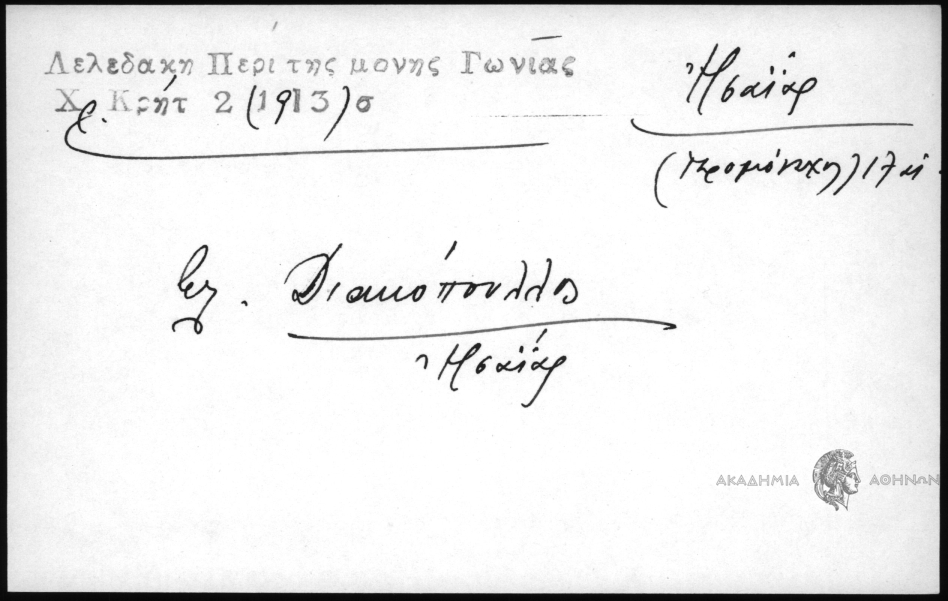 Λελεδακη Περι της μονης Γωνιας
Χ. Κρήτ 2 (1913) σ
Ἡσαΐας
(ἱερομόναχος) 17
Διακόπουλλος
Ἡσαΐας
ΑΚΑΔΗΜΙΑ ΑΘΗΝΩΝ